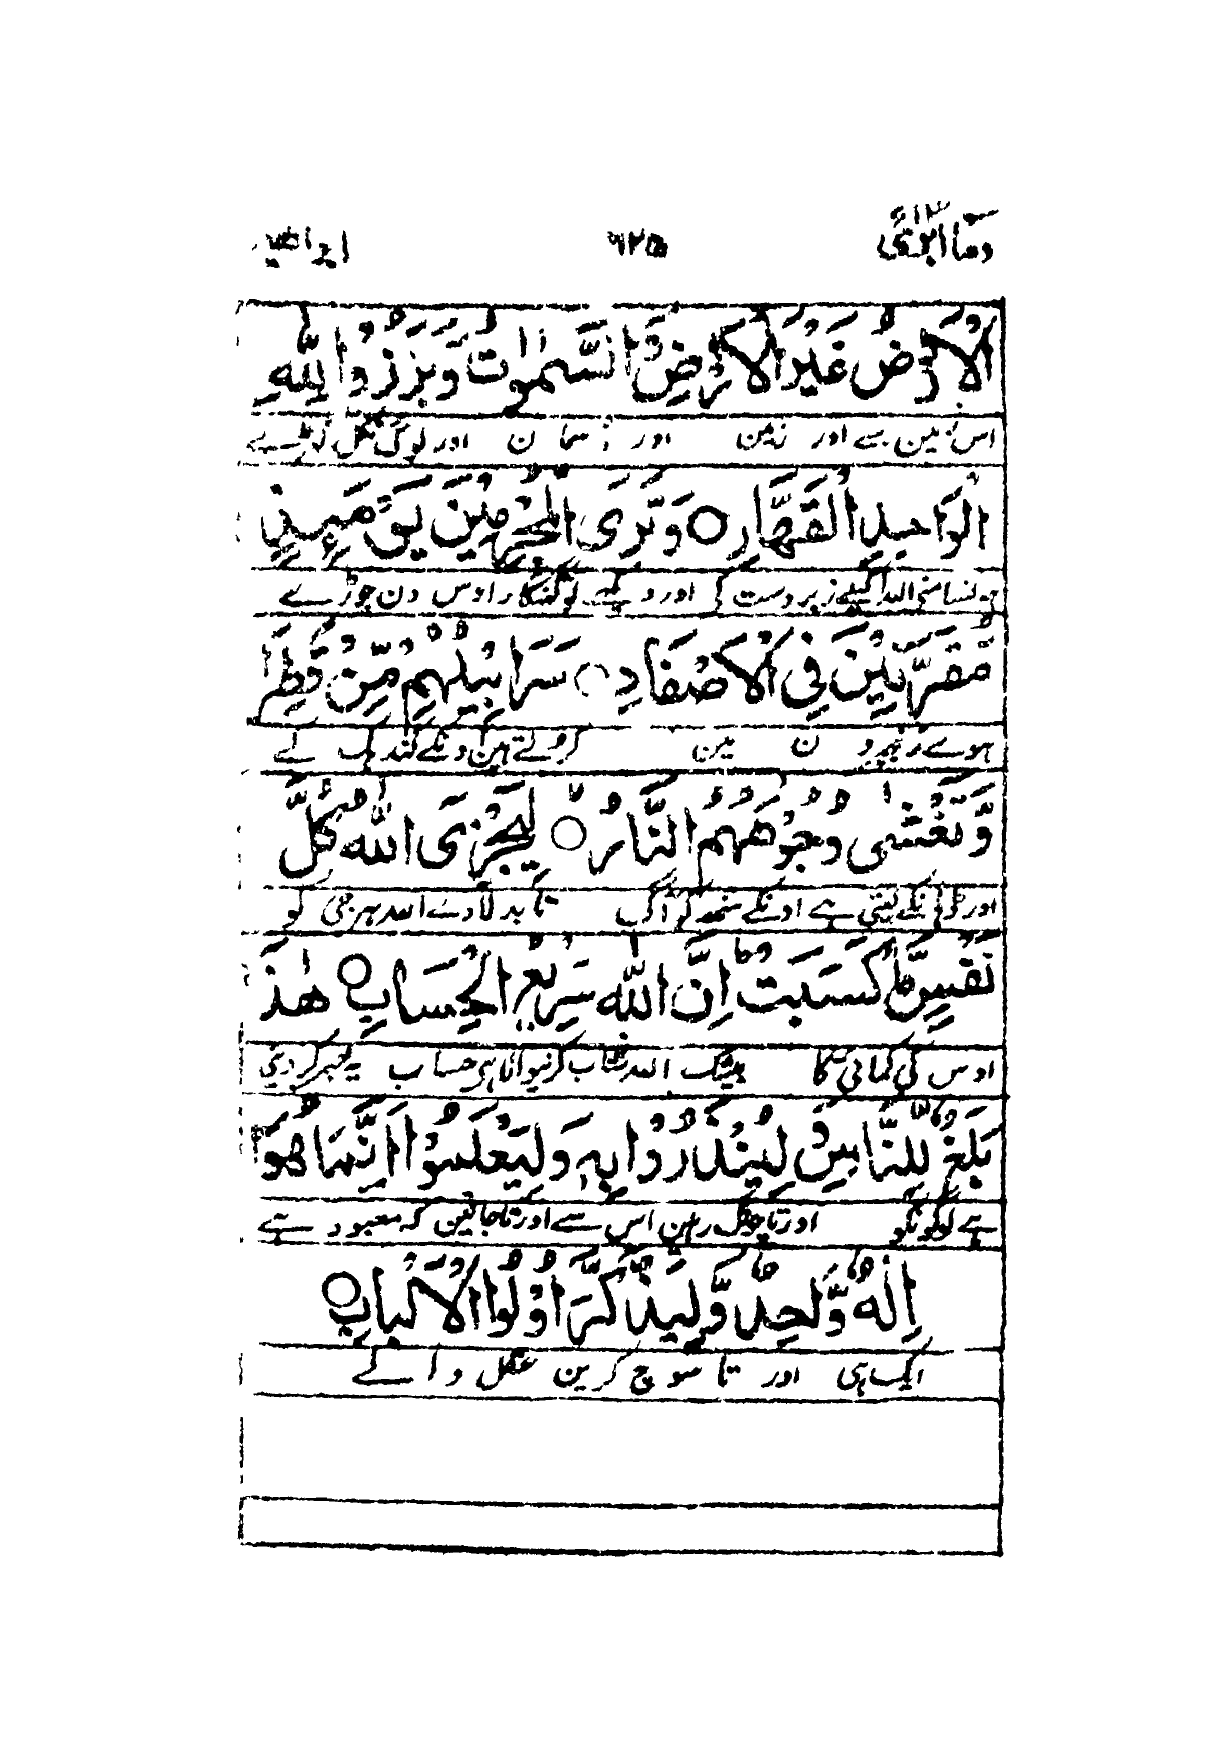 وما ابرئ ۱۳ ۶۲۵ ابراهيم
الْاَرْضُ غَيْرَ الْاَرْضِ وَ السَّمٰوٰتُ وَبَرَزُوْا لِلّٰهِ
اس زمین سے اور زمین اور آسمان اور لوگ نکل کھڑے
الْوَاحِدِ الْقَهَّارِ ○ وَتَرَى الْمُجْرِمِيْنَ يَوْمَئِذٍ
سامنے اللہ اکیلے زبردست کی اور دیکھے تو گنہگار اوس دن جوڑے
مُّقَرَّنِيْنَ فِى الْاَصْفَادِ ○ سَرَابِيْلُهُمْ مِّنْ قَطِرَا
ہوے زنجیرو ن مین کرتے ہین ونکے گندہک کے
وَّتَغْشٰى وُجُوْهَهُمُ النَّارُ ○ لِيَجْزِىَ اللّٰهُ كُلَّ
اور لیتی ہے اونکے منھ کو آگ تا بدلا دے اللہ ہر جی کو
نَفْسٍ مَّا كَسَبَتْ اِنَّ اللّٰهَ سَرِيْعُ الْحِسَابِ ○ هٰذَ
اوس کی کمائی کا بیشک اللہ شتاب کرنیوالا ہی حساب یہ خبر کر دینی
بَلٰغٌ لِّلنَّاسِ وَ لِيُنْذَرُوْا بِهٖ وَلِيَعْلَمُوْا اَنَّمَا هُوَ
ہے لوگونکو اور تا چونک رہین اس سے اور تا جانین کہ معبود ہے
اِلٰهٌ وَّاحِدٌ وَّلِيَذَّكَّرَ اُولُوا الْاَلْبَابِ ○
ایک ہی اور تا سوچ کرین عقل والے